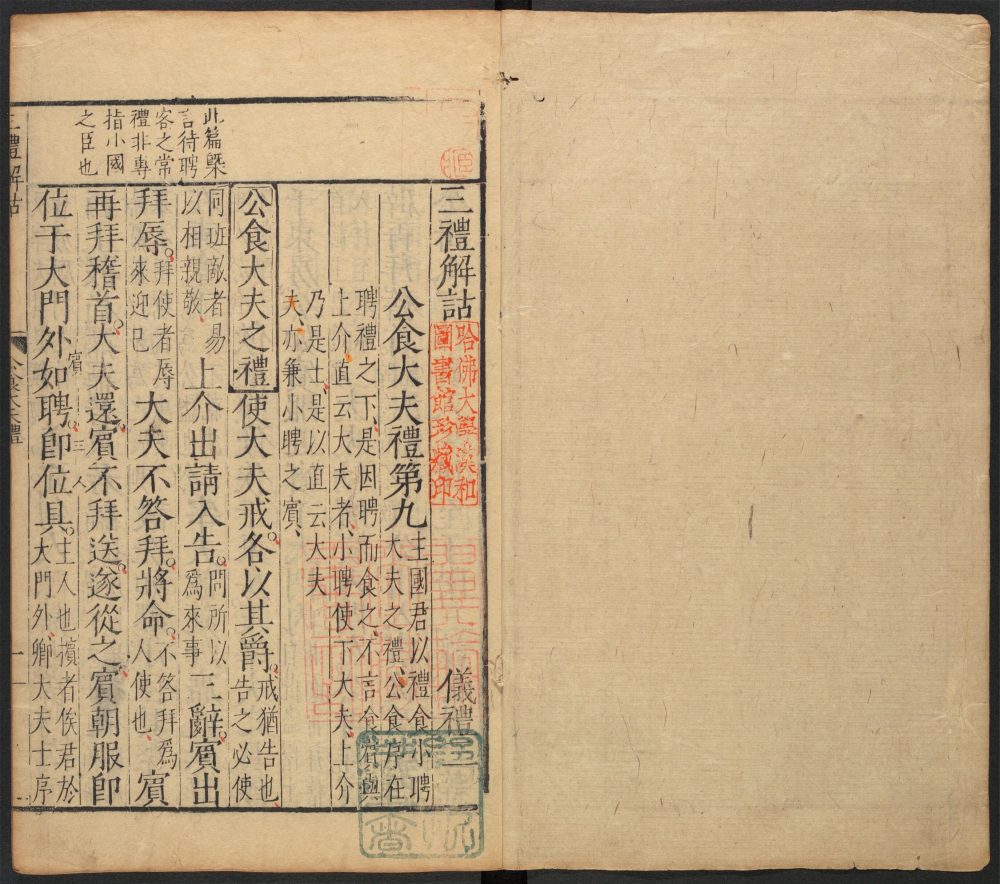 三禮解詁 儀禮
公食大夫禮第九 主國君以禮食小聘
大夫之禮、公食序在
聘禮之下、是因聘而食之、不言食賓與
上介、直云大夫者、小聘使下大夫、上介
乃是士、是以直云大夫
夫、亦兼小聘之賓、
公食大夫之禮使大夫戒。各以其爵。戒猶告也
告之必使
同班敵者易
以相親敬、上介出請入告。問所以
爲來事三辭。賓出
拜辱。拜使者辱
來迎已大夫不答拜。將命。不答拜爲
人使也、賓
再拜稽首。大夫還。賓不拜送。遂從之賓朝服卽
位于大門外如聘。卽位具。主人也擯者俟君於
大門外、卿大夫士序
賓三人
此篇槩
言待聘
客之常
禮非專
指小國
之臣也
三禮解詁
公食大夫禮
一
哈佛大學漢和
圖書館珍藏印